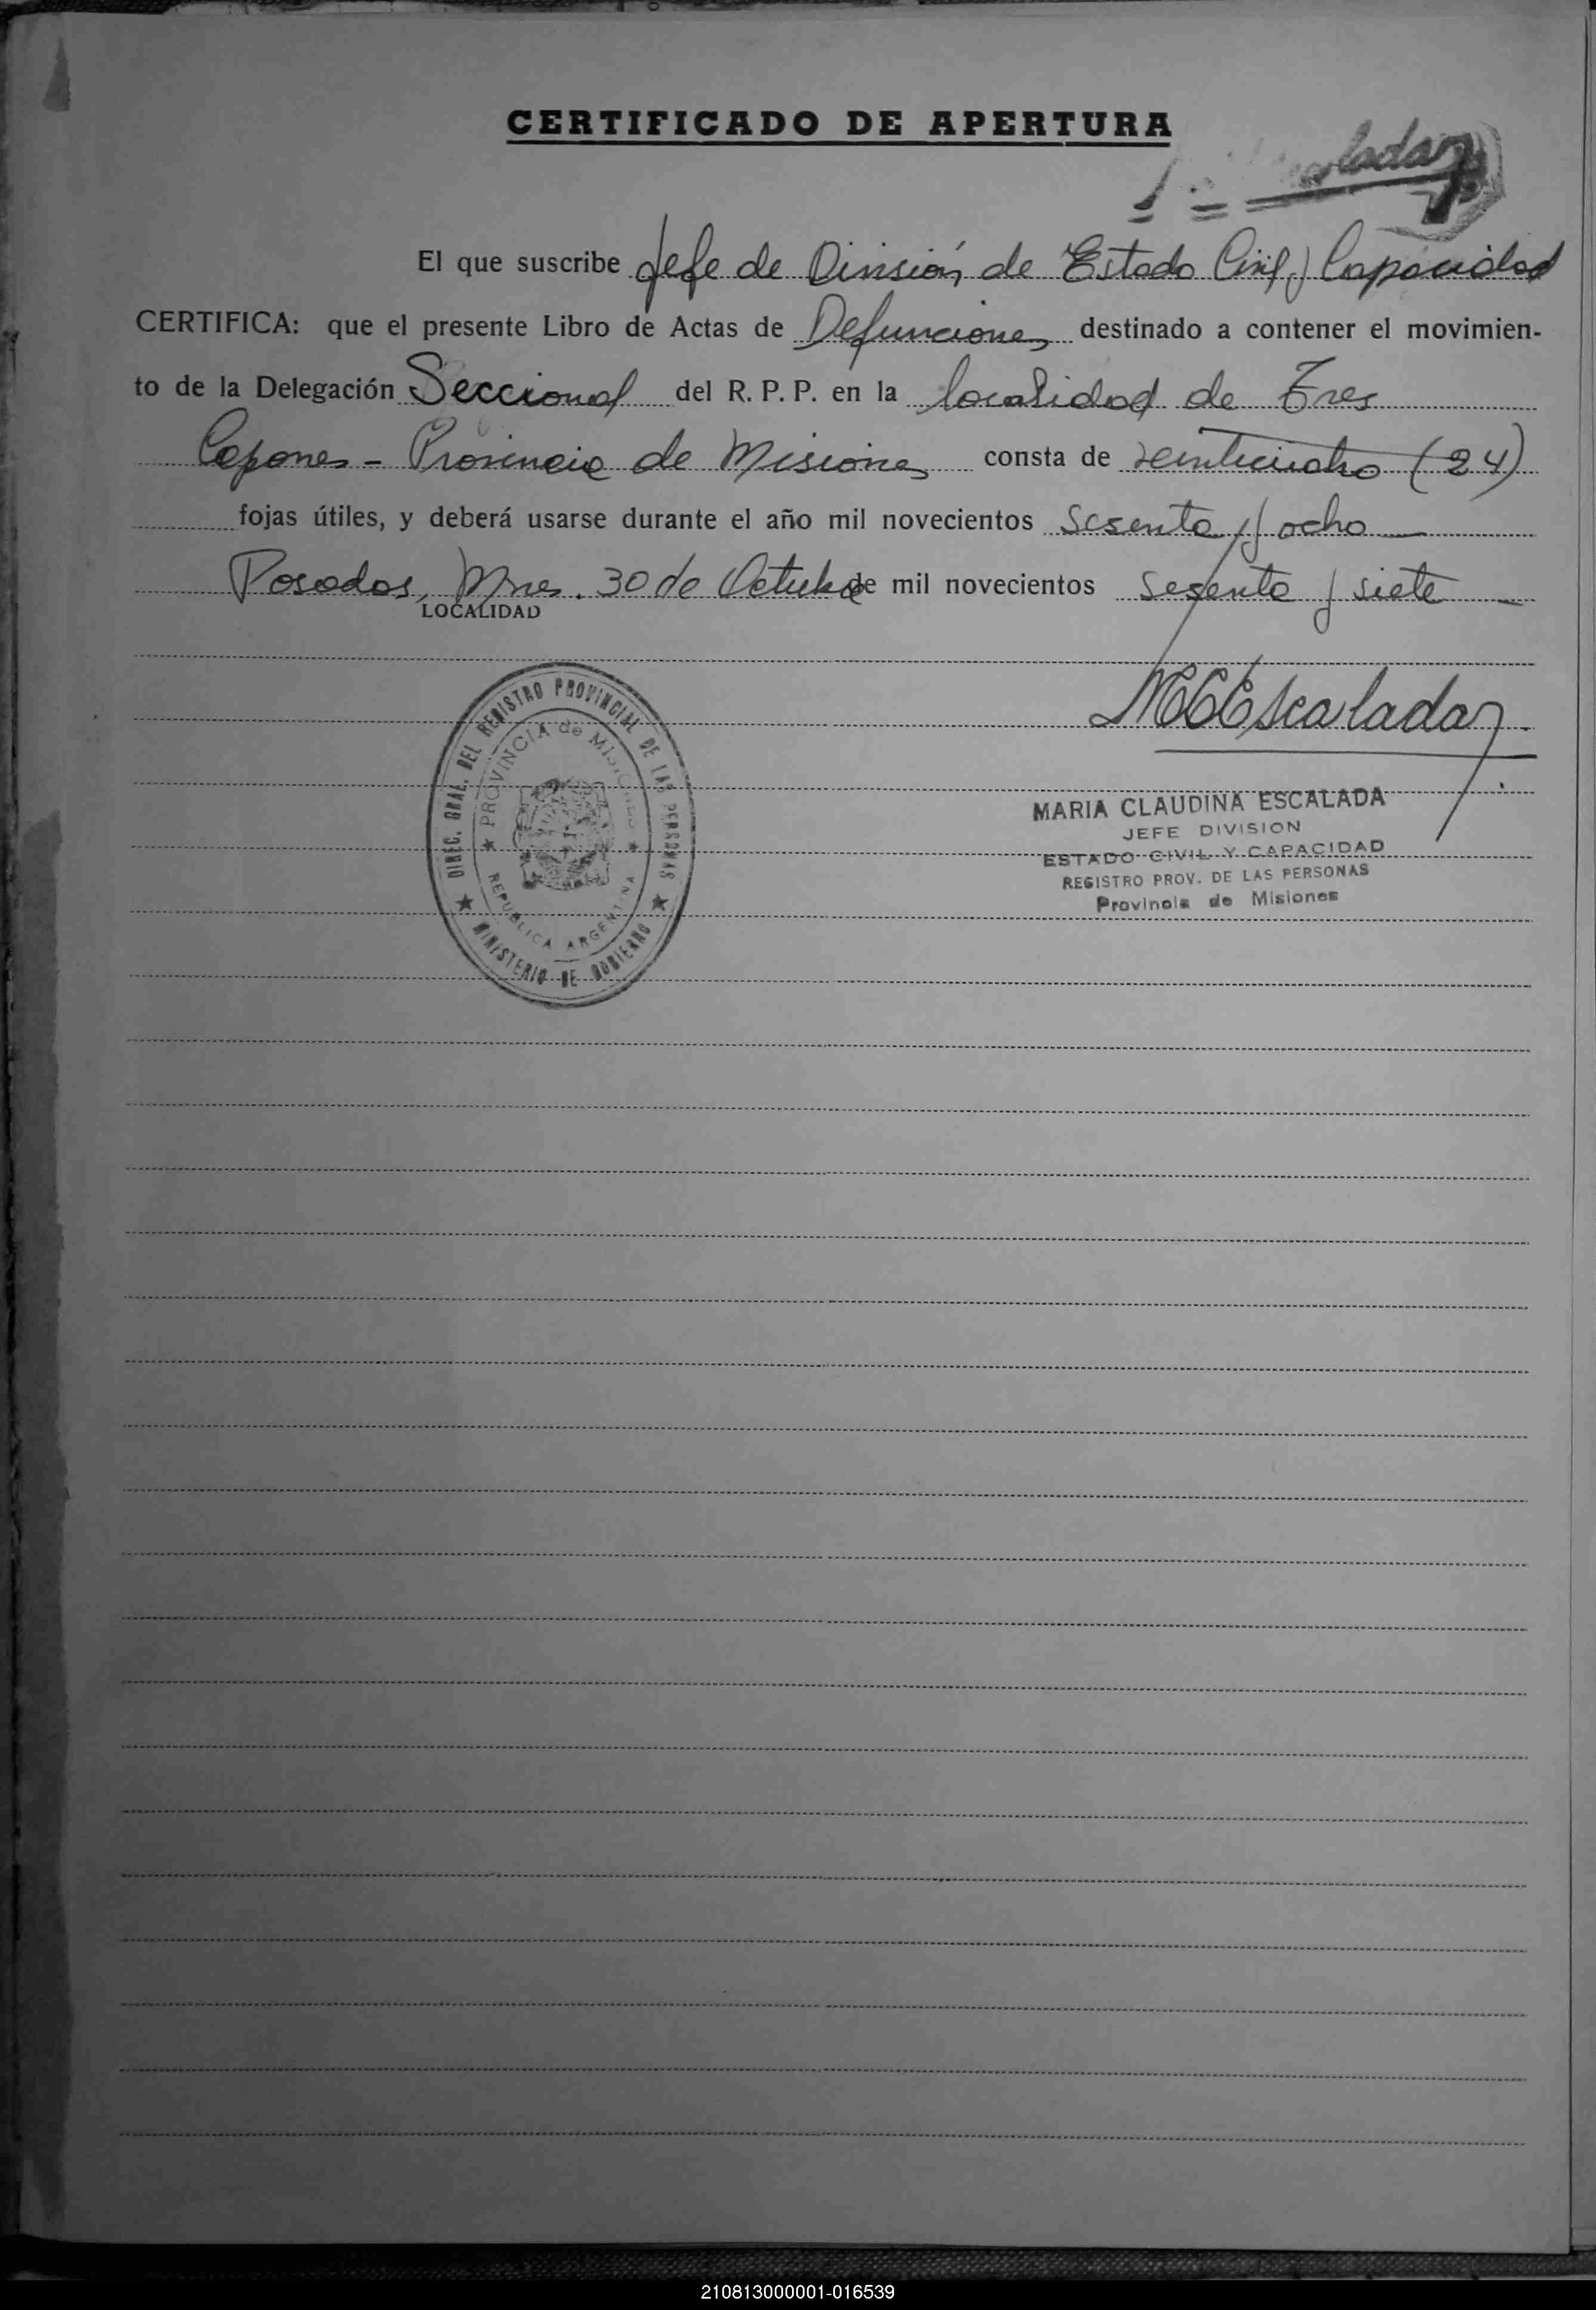 CERTIFICADO DE APERTURA
El que suscribe Jefe de División de Estado Civil y Capacidad
CERTIFICA: que el presente Libro de Actas de Defunciones destinado a contener el movimien-
to de la Delegación Seccional del R. P. P. en la localidad de Tres
Capones - Provincia de Misiones consta de veinticuatro (24)
fojas útiles, y deberá usarse durante el año mil novecientos sesenta y ocho —
Posadas, Mnes. 30 de Octubre de mil novecientos sesenta y siete —
LOCALIDAD
DIREC. GRAL. DEL REGISTRO PROVINCIAL DE LAS PERSONAS
PROVINCIA de MISIONES
REPUBLICA ARGENTINA
MINISTERIO DE GOBIERNO
MCEscalada
MARIA CLAUDINA ESCALADA
JEFE DIVISION
ESTADO CIVIL Y CAPACIDAD
REGISTRO PROV. DE LAS PERSONAS
Provincia de Misiones
210813000001-016539